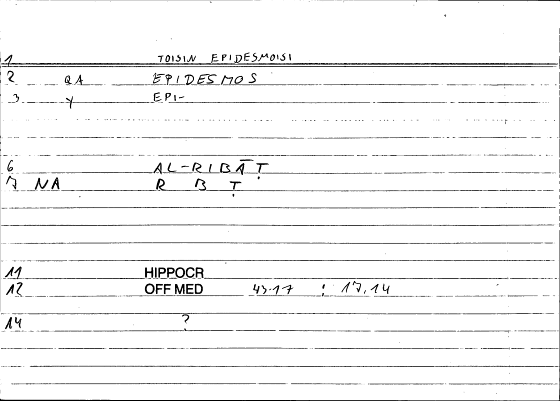 1 TOISIN EPIDESMOISI
2 QA EPIDESMOS
3 Y EPI-
6 AL-RIBĀṬ
7 NA R B Ṭ
11 HIPPOCR
12 OFF MED 43.17 : 17,14
14 ?